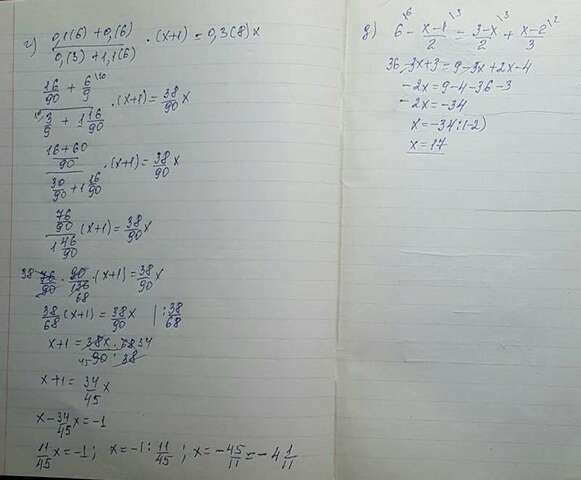 г) (0,1(6) + 0,(6))/(0,(3) + 1,1(6)) · (x+1) = 0,3(8)x
(16/90 + 6/9 \10)/(10/ 3/9 + 1 16/90) · (x+1) = 38/90 x
((16+60)/90)/(30/90 + 1 16/90) · (x+1) = 38/90 x
(76/90)/(1 46/90) (x+1) = 38/90 x
38 76/90 · 90/136 68 · (x+1) = 38/90 x
38/68 (x+1) = 38/90 x | : 38/68
x+1 = (38x · 68 34)/(45 90 · 38)
x+1 = 34/45 x
x - 34/45 x = -1
11/45 x = -1 ; x = -1 : 11/45 ; x = -45/11 = -4 1/11
д) 6 \6 - (x-1)/2 \3 = (3-x)/2 \3 + (x-2)/3 \2
36 - 3x + 3 = 9 - 3x + 2x - 4
-2x = 9 - 4 - 36 - 3
-2x = -34
x = -34 : (-2)
x = 17